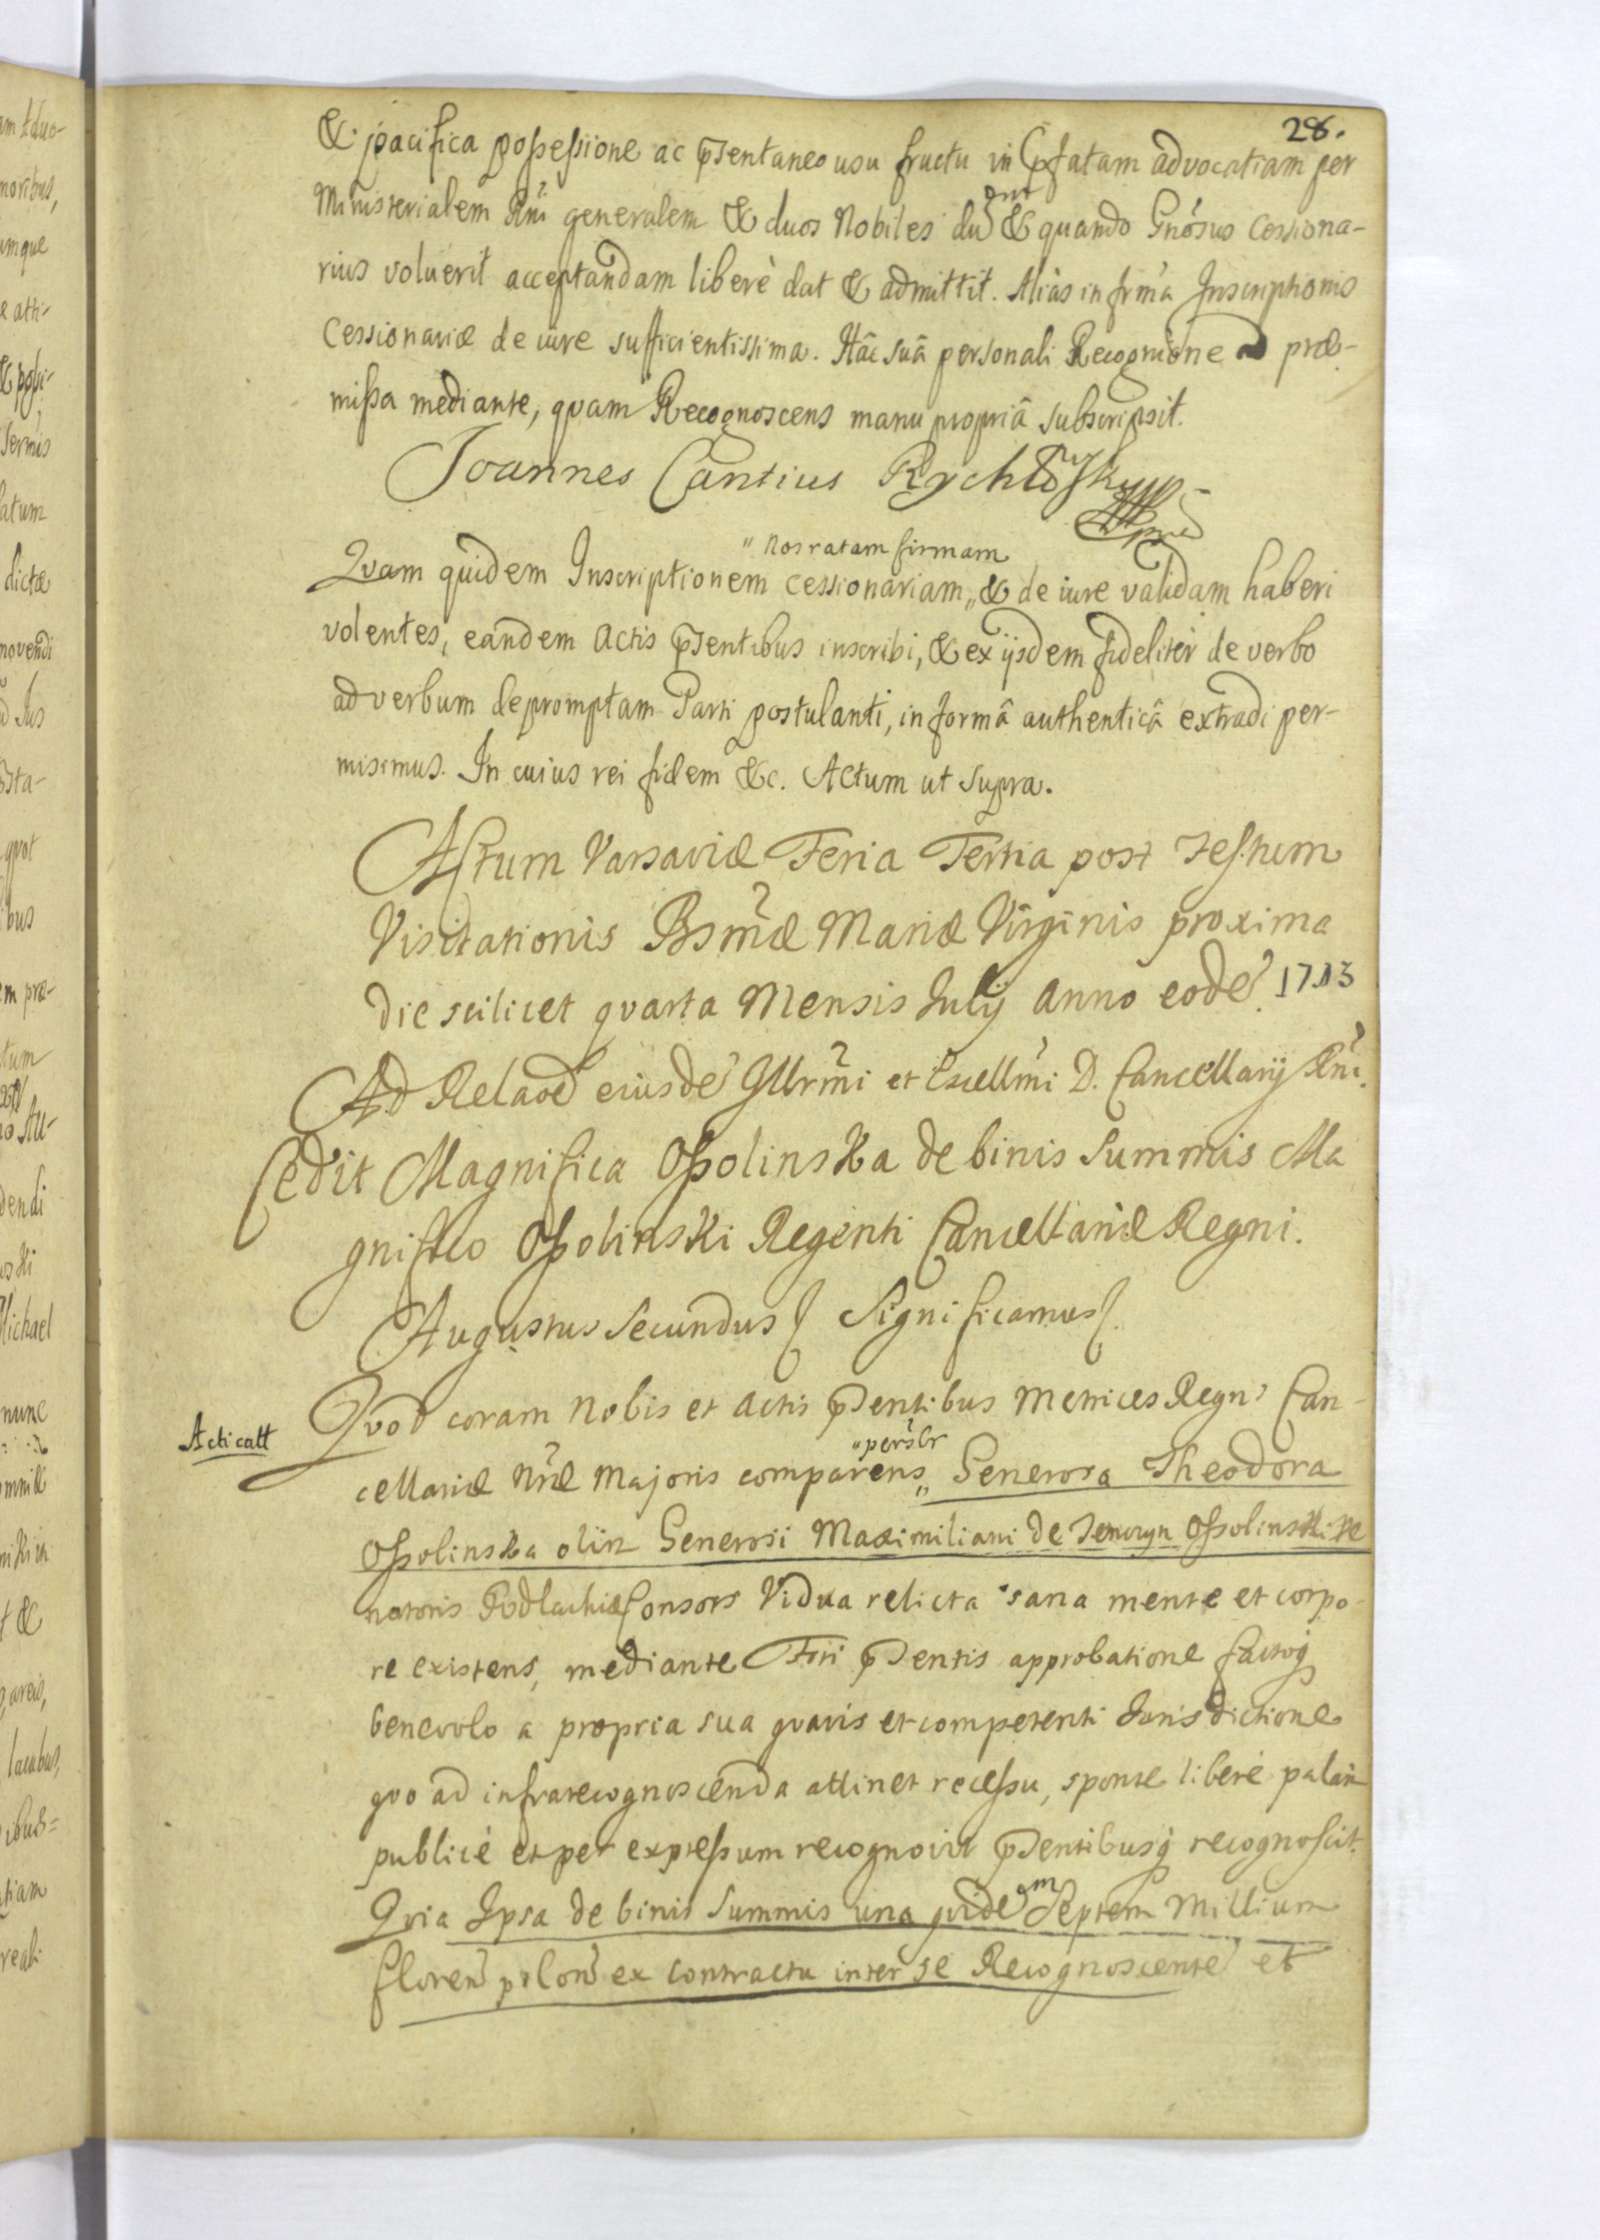 28.
& pacifica possessione ac pſentaneo usu fructu in pfatam advocatiam per
Ministerialem Rni generalem & duos Nobiles dũ & quando Gnósus Cessiona-
rius voluerit acceptandam liberè dat & admittit. Aliàs in frmã Inscriptionis
Cessionariæ de iure sufficientissima. Hâc suâ personali Recognione præ-
missa mediante, quam Recognoscens manu propriâ subscripsit.
Joannes Cantius Rychłowsky
" nos ratam firmam
Quam quidem Inscriptionem cessionariam,, & de iure validam haberi
volentes, eandem Actis pſentibus inscribi, & ex ijsdem fideliter de verbo
ad verbum depromptam Parti postulanti, in formâ authenticâ extradi per-
misimus. In cuius rei fidem &c. Actum ut Supra.
Actum Varsaviæ Feria Tertia post Festum
Visitationis Bsmæ Mariæ Virginis proxima
die scilicet quarta Mensis Julij Anno eodẽ 1713
Ad Relaoẽ eiusdẽ Illrmi et Excellmi D. Cancellarij Rni.
Cedit Magnifica Ossolinska de binis Summis Ma
gnifico Ossolinski Regenti Cancellariæ Regni.
Augustus Secundus Significamus
Quod coram Nobis et Actis pſentibus Metrices Regni Can-
Acticatt
"persbr
cellariæ Nræ Majoris comparens,, Generosa Theodora
Ossolinska olim Generosi Maximiliani de Tenczyn Ossolinski Se
natoris Podlachiæ Consors Vidua relicta sana mente et corpo-
re existens, mediante Fori pſentis approbatione factoq
benevolo a propria sua quavis et competenti Jurisdictione
quo ad infrarecognoscenda attinet recessu, sponte liberè palam
publicè et per expressum recognovit pſentibusq recognoscit.
Quia Ipsa de binis Summis una quidẽm Septem Millium
floreñ poloñ ex Contractu inter se Recognoscentẽ et